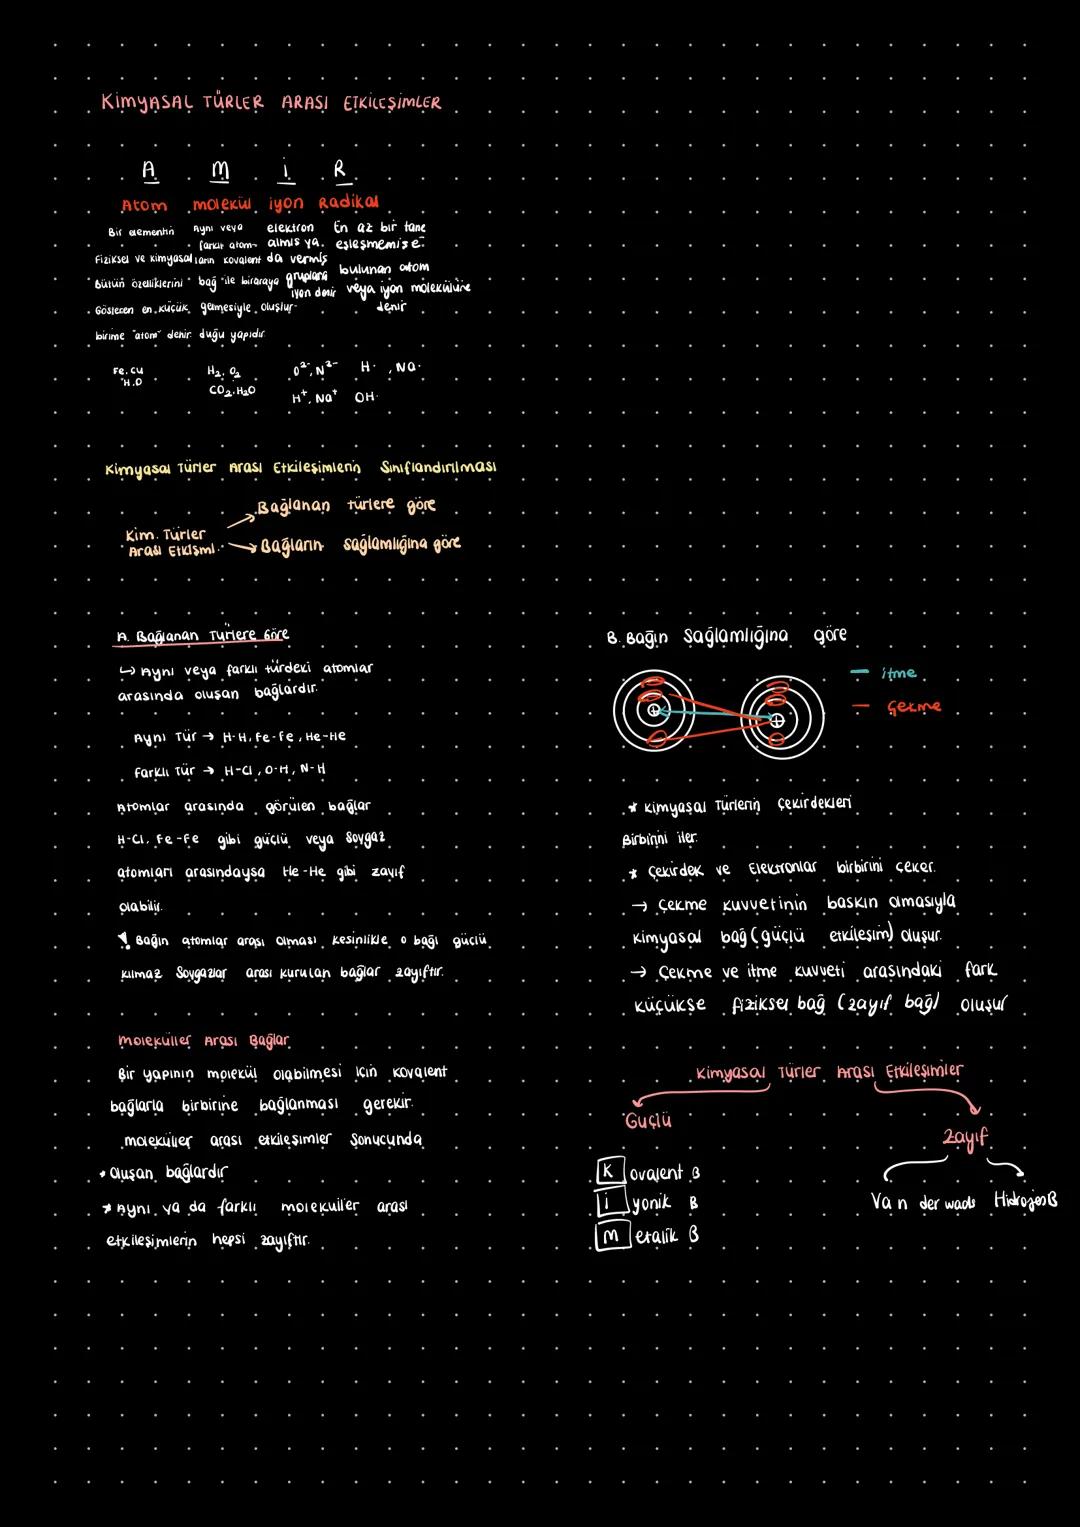 KİMYASAL TÜRLER ARASI ETKİLEŞİMLER
A M İ R
Atom molekül iyon Radikal
Bir elementin
Fiziksel ve kimyasal
Bütün özelliklerini
Gösteren en küçük
birime "atom" denir.
Aynı veya
farklı atom-
ların kovalent
bağ ile biraraya
gelmesiyle oluştur-
duğu yapıdır
elektron
almış ya
da vermiş
gruplara
iyon denir
En az bir tane
eşleşmemiş e-
bulunan atom
veya iyon molekülüne
denir
Fe, Cu
H, O
H₂, O₂
CO₂, H₂O
O²⁻, N³⁻
H⁺, Na⁺
H· , Na·
OH·
Kimyasal Türler Arası Etkileşimlerin Sınıflandırılması
Kim. Türler
Arası Etkişml.
→ Bağlanan türlere göre
→ Bağların sağlamlığına göre
A. Bağlanan Türlere Göre
↳ Aynı veya farklı türdeki atomlar
arasında oluşan bağlardır.
Aynı Tür → H-H, Fe-Fe, He-He
Farklı Tür → H-Cl, O-H, N-H
Atomlar arasında görülen bağlar
H-Cl, Fe-Fe gibi güçlü veya Soygaz
atomları arasındaysa He-He gibi zayıf
olabilir.
! Bağın atomlar arası olması kesinlikle o bağı güçlü
kılmaz Soygazlar arası kurulan bağlar zayıftır.
Moleküller Arası Bağlar
Bir yapının molekül olabilmesi için kovalent
bağlarla birbirine bağlanması gerekir.
moleküller arası etkileşimler sonucunda
• oluşan bağlardır
* Aynı ya da farklı moleküller arası
etkileşimlerin hepsi zayıftır.
B. Bağın Sağlamlığına göre
— itme
— Çekme
* kimyasal Türlerin çekirdekleri
Birbirini iter.
* Çekirdek ve Elektronlar birbirini çeker.
→ Çekme kuvvetinin baskın olmasıyla
kimyasal bağ (güçlü etkileşim) oluşur.
→ Çekme ve itme kuvveti arasındaki fark
küçükse fiziksel bağ (zayıf bağ) oluşur
Kimyasal Türler Arası Etkileşimler
Güçlü
Zayıf
Kovalent B
İyonik B
Metalik B
Van der waals HidrojenB